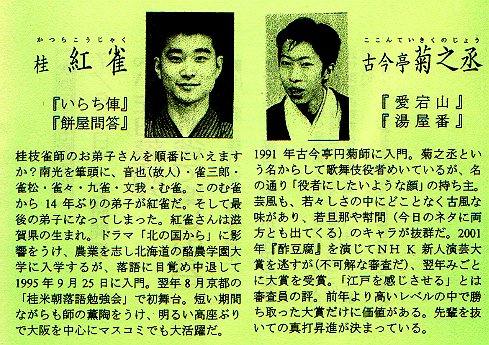 かつらこうじゃく
桂 紅雀
『いらち俥』
『餅屋問答』
ここんていきくのじょう
古今亭菊之丞
『愛宕山』
『湯屋番』
桂枝雀師のお弟子さんを順番にいえます
か?南光を筆頭に、音也(故人)・雀三郎・
雀松・雀々・九雀・文我・む雀。このむ雀
から 14 年ぶりの弟子が紅雀だ。そして最
後の弟子になってしまった。紅雀さんは滋
賀県の生まれ。ドラマ「北の国から」に影
響をうけ、農業を志し北海道の酪農学園大
学に入学するが、落語に目覚め中退して
1995 年 9 月 25 日に入門。翌年 8 月京都の
「桂米朝落語勉強会」で初舞台。短い期間
ながらも師の薫陶をうけ、明るい高座ぶり
で大阪を中心にマスコミでも大活躍だ。
1991 年古今亭円菊師に入門。菊之丞とい
う名からして歌舞伎役者めいているが、名
の通り「役者にしたいような顔」の持ち主。
芸風も、若々しさの中にどことなく古風な
味があり、若旦那や幇間(今日のネタに両
方とも出てくる)のキャラが抜群だ。2001
年『酢豆腐』を演じてNHK新人演芸大
賞を逃すが(不可解な審査だ)、翌年みごと
に大賞を受賞。「江戸を感じさせる」とは
審査員の評。前年より高いレベルの中で勝
ち取った大賞だけに価値がある。先輩を抜
いての真打昇進が決まっている。